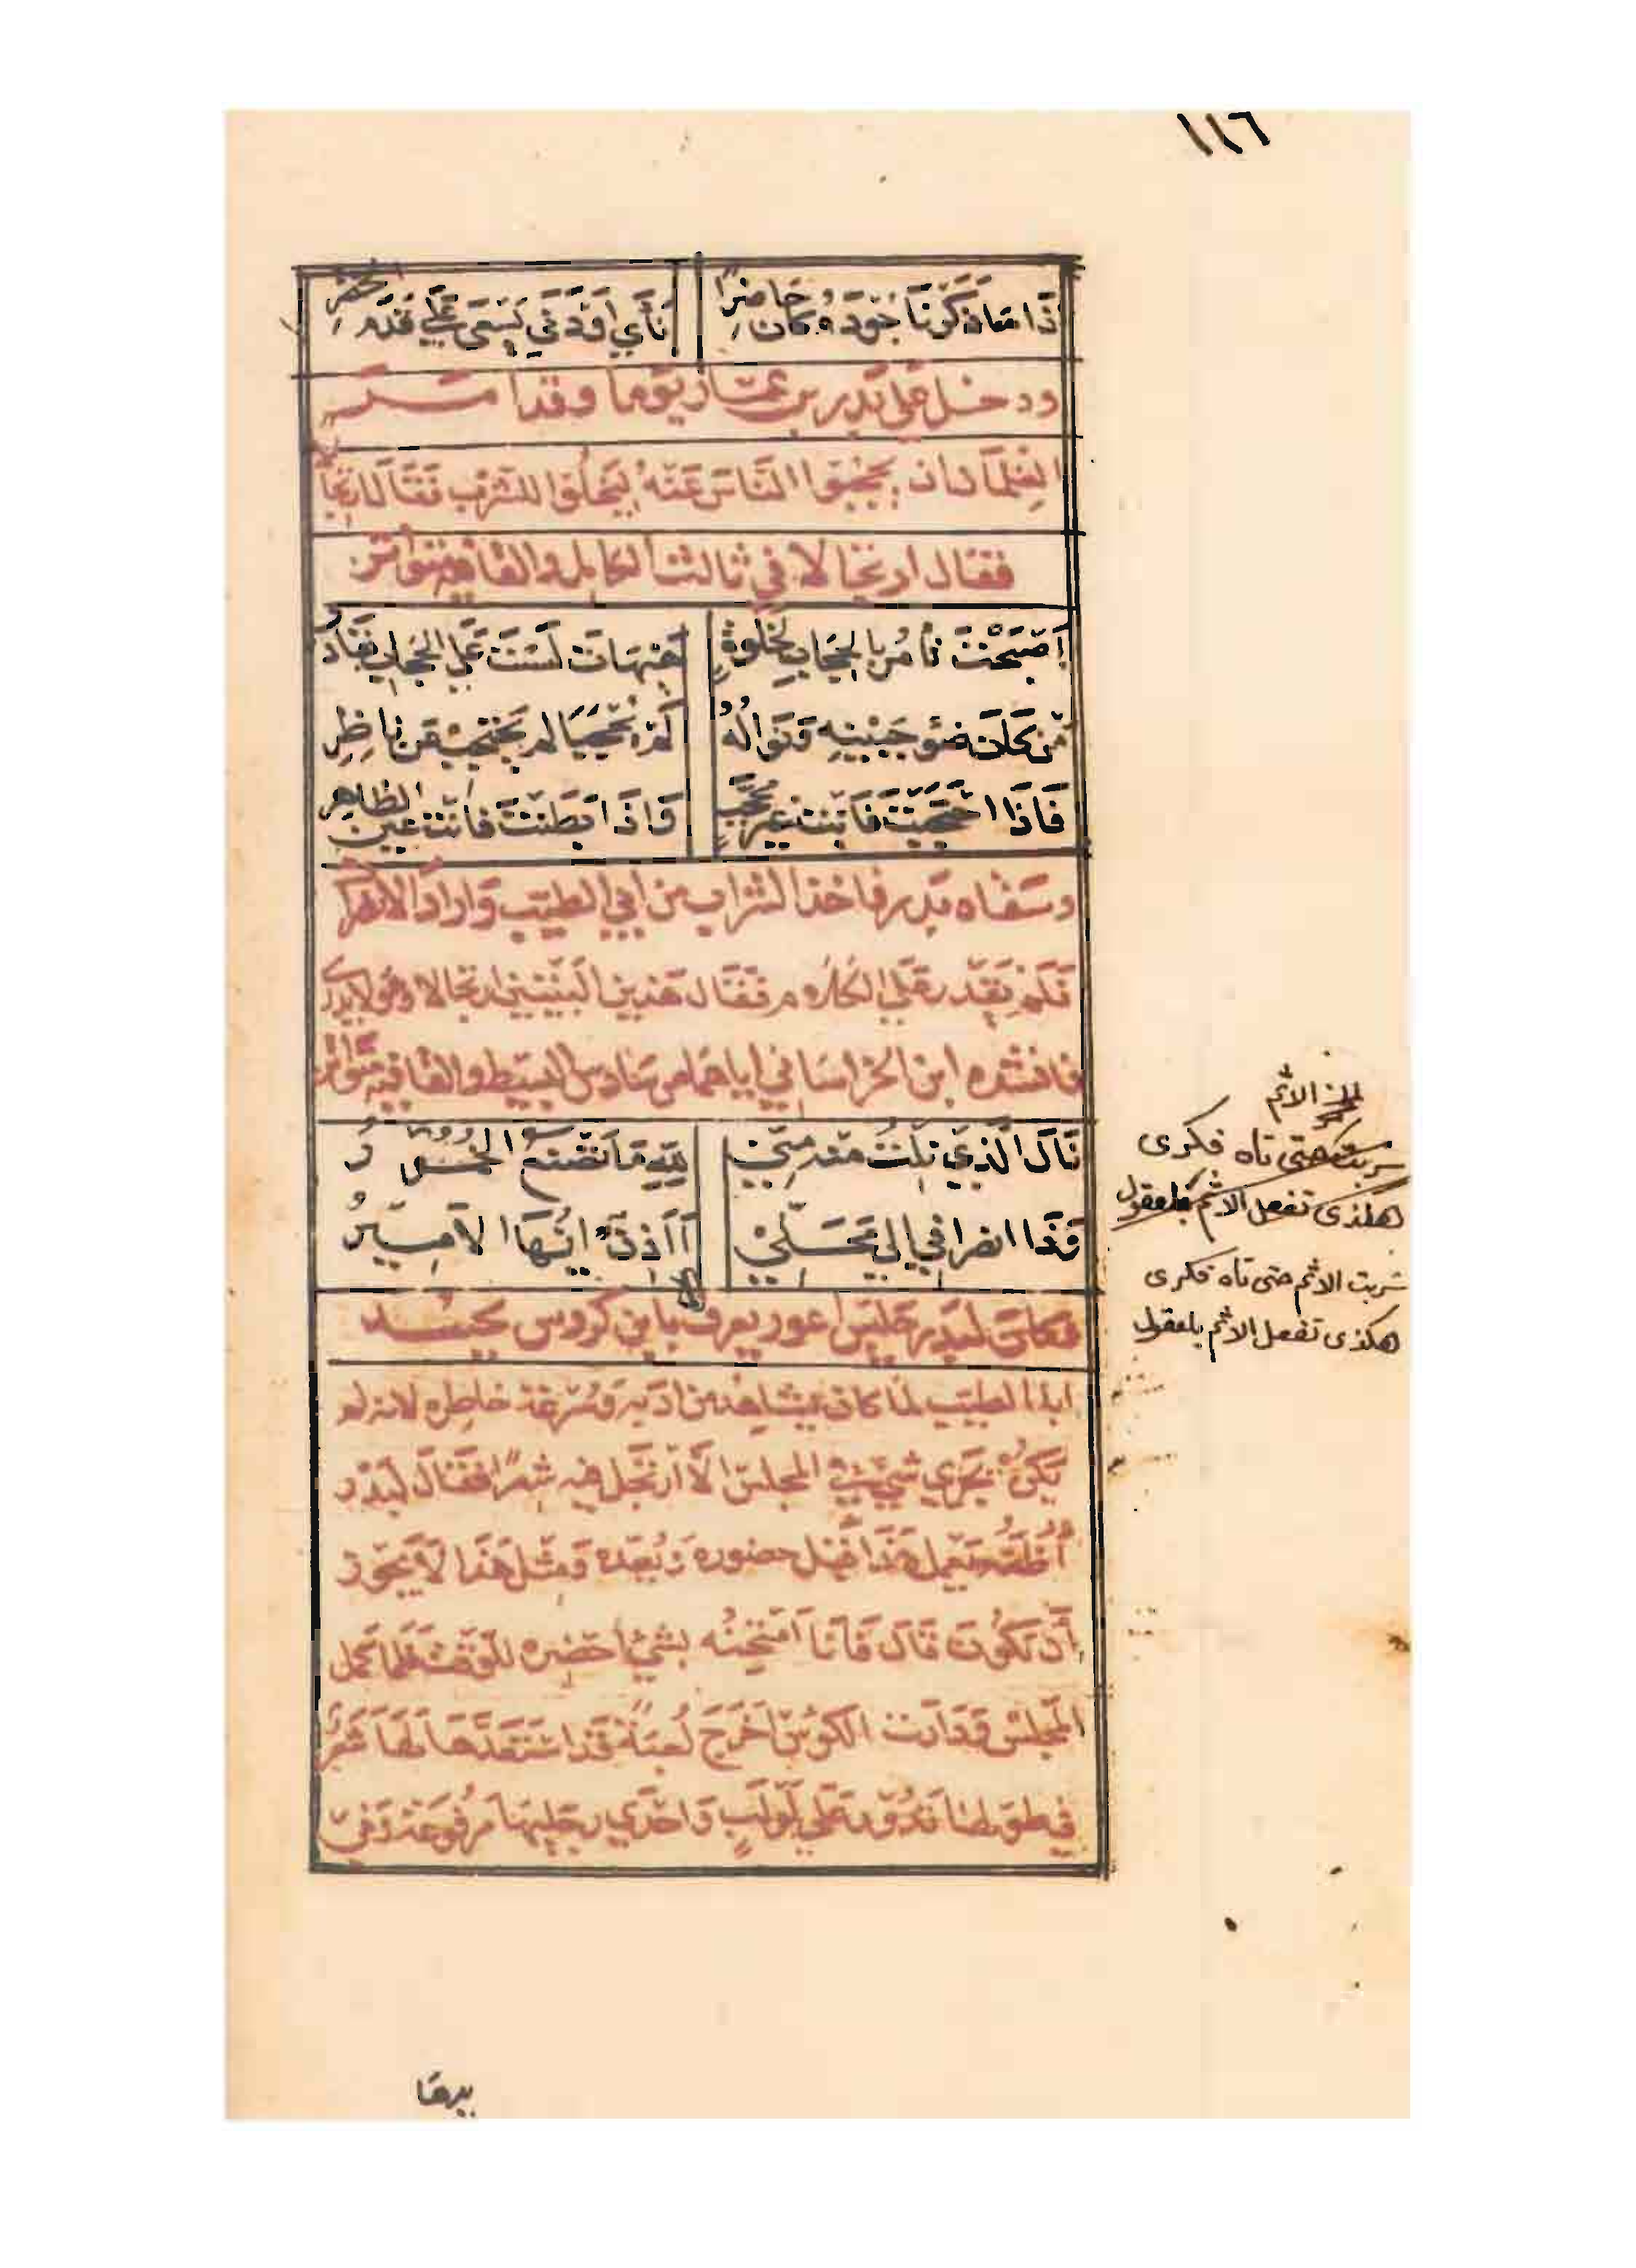 ١١٦
ذا ما ذكرنا جوده كان حاضرا نأى او دنى يسعى على قدم الخضر
ودخل على بدر بن عمار يوما وقد امر
الغلمان ان يحجبوا الناس عنه ليخلوا للشرب فقال ارتجالا
فقال ارتجالا في ثالث الكامل والقافية متواتر
أَصْبَحْتَ تأمُر بالحجابِ لخلوةٍ هَيْهات لَسْتَ عَلى الحجاب بقادر
مَن كانَ ضوءُ جَبينِهِ وَنَوالُهُ لم يُحجبا لم يَحْتَجِبْ عَن ناظِرِ
فَاذَا احْتَجَبْتَ فَأنت غير مُحَجَّبٍ وَاذَا بَطَنْتَ فأنت عين الظاهِرِ
وسقاه بدر فاخذ الشراب من ابي الطيّب وَاراد الانصرا
فلم يقدر على الكلام فقال هذين البيتين ارتجالا وهو لا يدرى
فانشده ابن الخراساني اياهما من سادس البسيط والقافية متواتر
نَالَ الَّذي نِلْتُ منه مِنّي للهِ مَا تَصْنَعُ الخمورُ
وَذا انصرافي الى مَحَلّيْ أَآذِنٌ ايُّهَا الاَمِيرُ
فكان لبدر جليس اعور يعرف بابن كروس يحسد
ابا الطيّب لما كان يشاهد من ادبه وسُرْعَة خاطره لانه لم
يكُنْ يَجْري شيْ في المجلس الاّ ارتَجَل فيه شعرًا فقال لبدر
أظُنّه يعمل هَذَا قبل حضوره وَبَعْده وَمثل هَذا لاَ يجوز
أن تكُون قالَ فَأنا اَمْتَحِنُه بشئ احضره للوقت فلما كمل
المجلس وَدَارَت الكؤسُ اَخْرَجَ لُعبَةً قد استعَدَّهَا لَهَا شَعْر
في طولها تَدُورُ على لَولَبٍ وَاحْدَي رجليها مَرْفُوعَة وَفي
يدهَا
الاثم
شربت حتى تاه فكرى
هكذى تفعل الاثم بلعقول
شربت الاثم حتى تاه فكرى
هكذى تفعل الاثم بلعقول